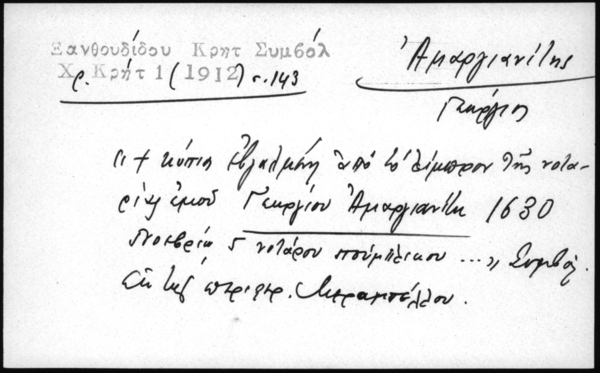 Ξανθουδίδου Κρητ Συμβόλ
Χρ. Κρήτ 1 (1912) σ. 143
Ἀμαργιανίτης
Γεώργιος
"+ κόπια ἐβγαλμένη ἀπὸ τὸ λίμπρον τῆς νοτα-
ρίας ἐμοῦ Γεωργίου Ἀμαργιανίτη 1630
Νοεμβρίῳ 5 νοτάρου πούμπλικου ...„ Συμβόλ.
ἐκ τῆς περιφερ. Μεραμπέλλου.